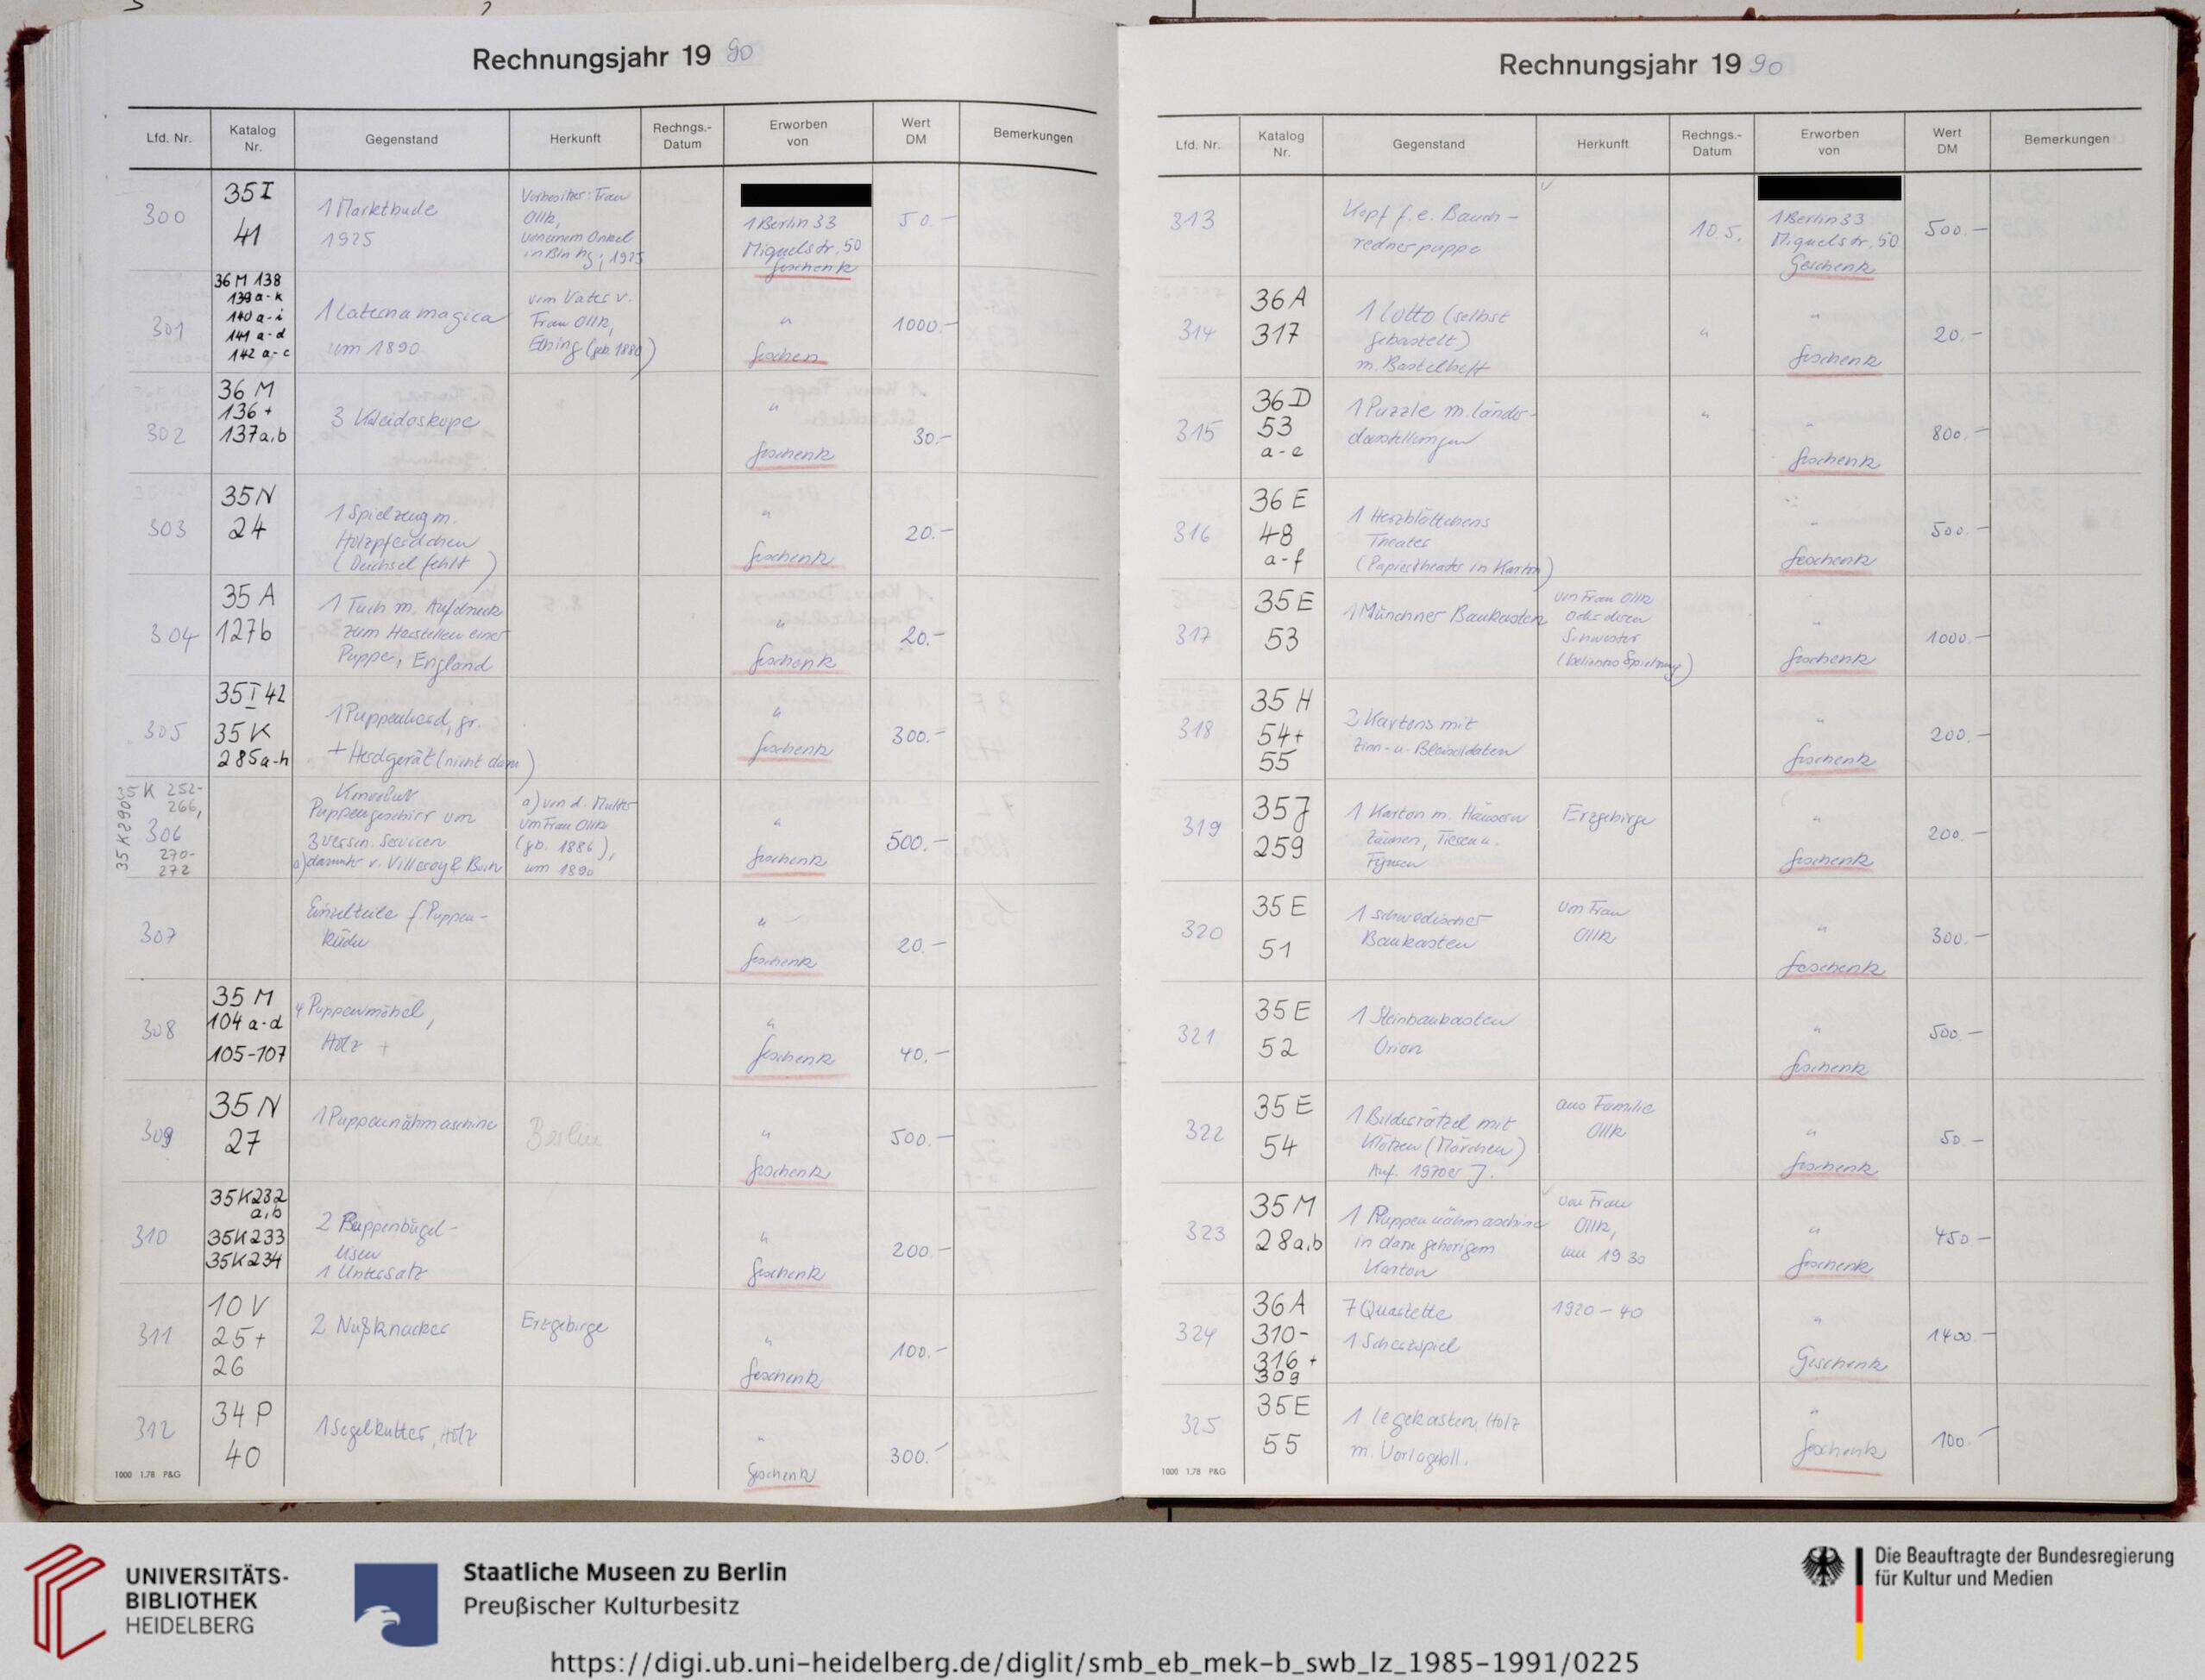 Rechnungsjahr 19 90
Lfd. Nr. Katalog Nr. Gegenstand Herkunft Rechngs.-Datum Erworben von Wert DM Bemerkungen
300 35 I 41 1 Marktbude 1925 Vorbesitzer: Frau Ollk, in Blnhg, 1925 1 Berlin 33 Miquelstr. 50 Geschenk 50.–
301 36 M 138 139 a-k 140 a-i 141 a-d 142 a-c 1 Laterna magica um 1890 vom Vater v. Frau Ollk, (geb. 1880) " Geschen 1000.–
302 36 M 136 + 137a,b 3 Kaleidoskope " Geschenk 30.–
303 35 N 24 1 Spielzeug m. Holzpferdchen (Deichsel fehlt) " Geschenk 20.–
304 35 A 127b 1 Tuch m. Aufdruck zum Herstellen einer Puppe, England " Geschenk 20.–
305 35 I 42 35 K 285a-h 1 Puppenherd, gr. + Herdgerät (nicht dazu) " Geschenk 300.–
35 K 252-266, 306 270-272 35 K 290 Konvolut Puppengeschirr von 3 versch. Servicen a) darunter v. Villeroy & Boch a) von d. Mutter von Frau Ollk (gb. 1886), um 1890 " Geschenk 500.–
307 Einzelteile f. Puppen-küche " Geschenk 20.–
308 35 M 104 a-d 105-107 4 Puppenmöbel, Holz + " Geschenk 40.–
309 35 N 27 1 Puppennähmaschine Berlin " Geschenk 500.–
310 35K232 a,b 35K233 35K234 2 Puppenbügel-eisen 1 Untersatz " Geschenk 200.–
311 10 V 25+ 26 2 Nußknacker Erzgebirge " Geschenk 100.–
312 34 P 40 1 Segelkutter, Holz " Geschenk 300.–
1000 1.78 P&G
Rechnungsjahr 19 90
Lfd. Nr. Katalog Nr. Gegenstand Herkunft Rechngs.-Datum Erworben von Wert DM Bemerkungen
313 Kopf f. e. Bauch-rednerpuppe 10.5. 1 Berlin 33 Miquelstr. 50 Geschenk 500.–
314 36 A 317 1 Lotto (selbst gebastelt) m. Bastelheft " " Geschenk 20.–
315 36 D 53 a-e 1 Puzzle m. Länder-darstellungen " " Geschenk 800.–
316 36 E 48 a-f 1 Herzblättchens Theater (Papiertheater in Karton) " Geschenk 500.–
317 35 E 53 1 Münchner Baukasten von Frau Ollk oder deren Schwester (beliebtes Spielzeug) " Geschenk 1000.–
318 35 H 54+ 55 2 Kartons mit Zinn- u. Bleisoldaten " Geschenk 200.–
319 35 J 259 1 Karton m. Häusern Zäunen, Tieren u. Figuren Erzgebirge " Geschenk 200.–
320 35 E 51 1 schwedischer Baukasten von Frau Ollk " Geschenk 300.–
321 35 E 52 1 Steinbaukasten Orion " Geschenk 500.–
322 35 E 54 1 Bilderrätsel mit Klötzen (Märchen) Auf. 1920er J. aus Familie Ollk " Geschenk 50.–
323 35 M 28a,b 1 Puppennähmaschine in dazu gehörigem Karton von Frau Ollk, um 1930 " Geschenk 450.–
324 36 A 310-316 + 309 7 Quartette 1 Scherzspiel 1920 – 40 " Geschenk 1400.–
325 35 E 55 1 Legekasten, Holz m. Vorlagebll. " Geschenk 100.–
1000 1.78 P&G
UNIVERSITÄTS-
BIBLIOTHEK
HEIDELBERG
Staatliche Museen zu Berlin
Preußischer Kulturbesitz
Die Beauftragte der Bundesregierung
für Kultur und Medien
https://digi.ub.uni-heidelberg.de/diglit/smb_eb_mek-b_swb_lz_1985-1991/0225